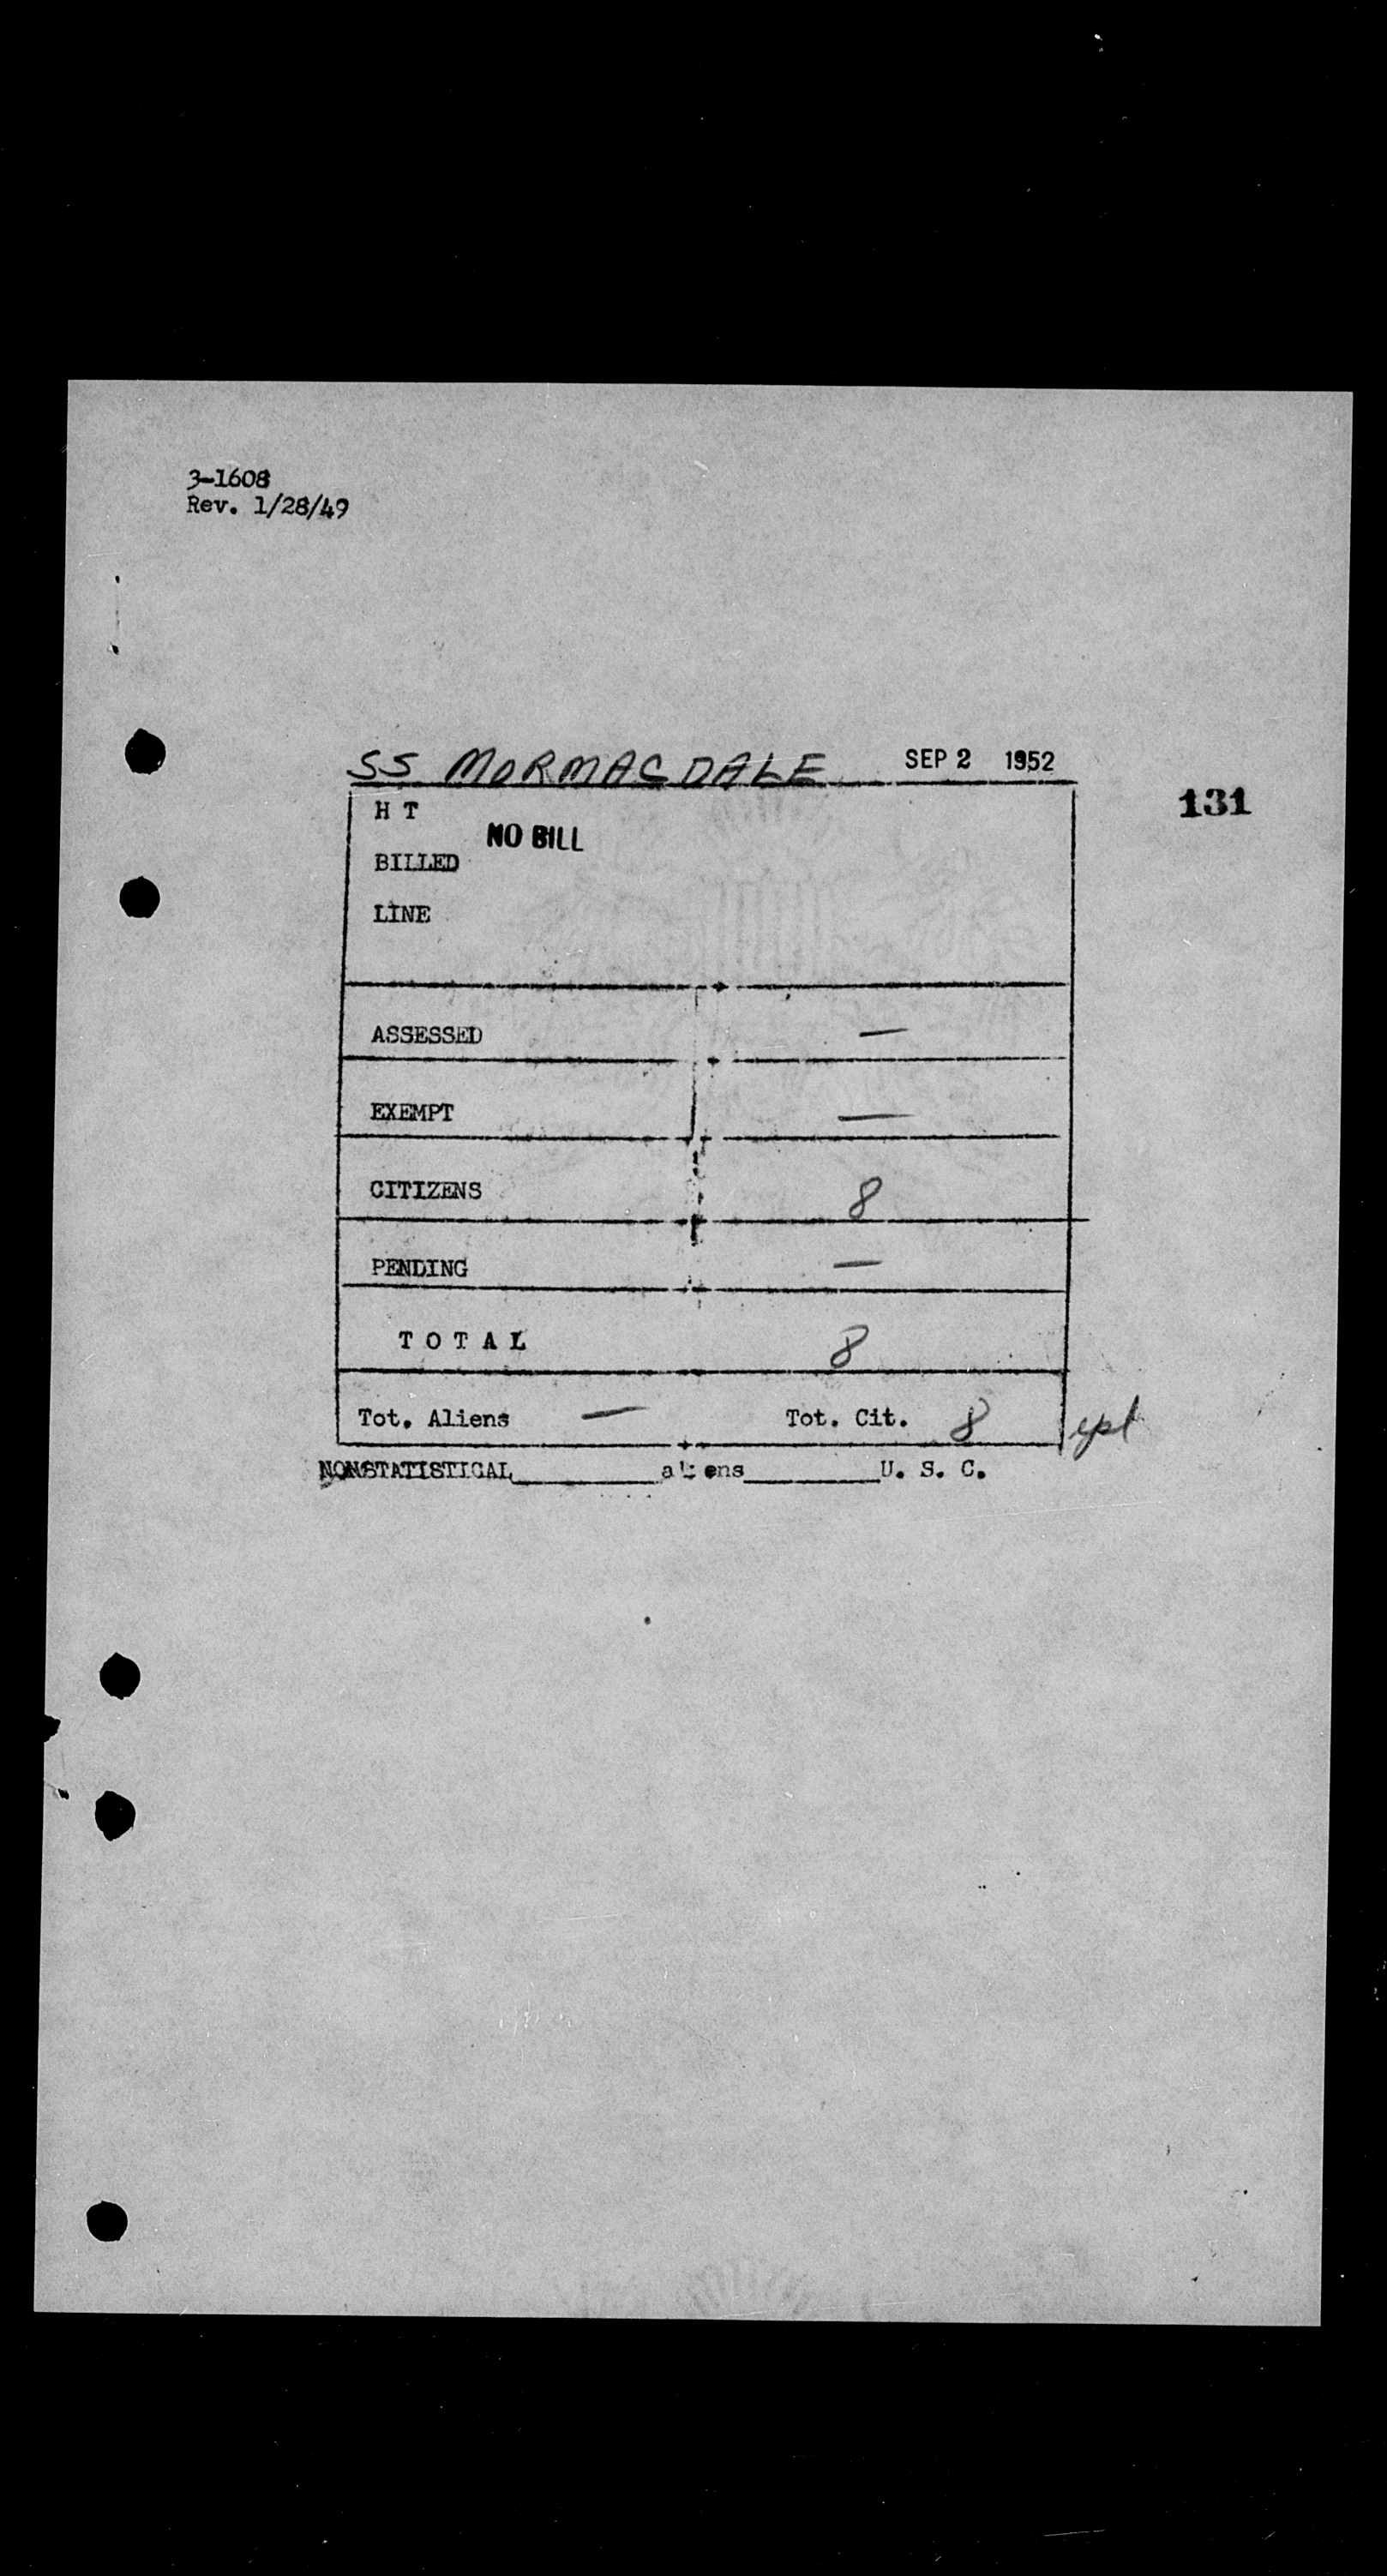 3-1608
Rev. 1/28/49
SS MORMACDALE SEP 2 1952
131
H T
NO BILL
BILLED
LINE
ASSESSED —
EXEMPT —
CITIZENS 8
PENDING —
T O T A L 8
Tot. Aliens — Tot. Cit. 8
NONSTATISTICAL________aliens________U. S. C.